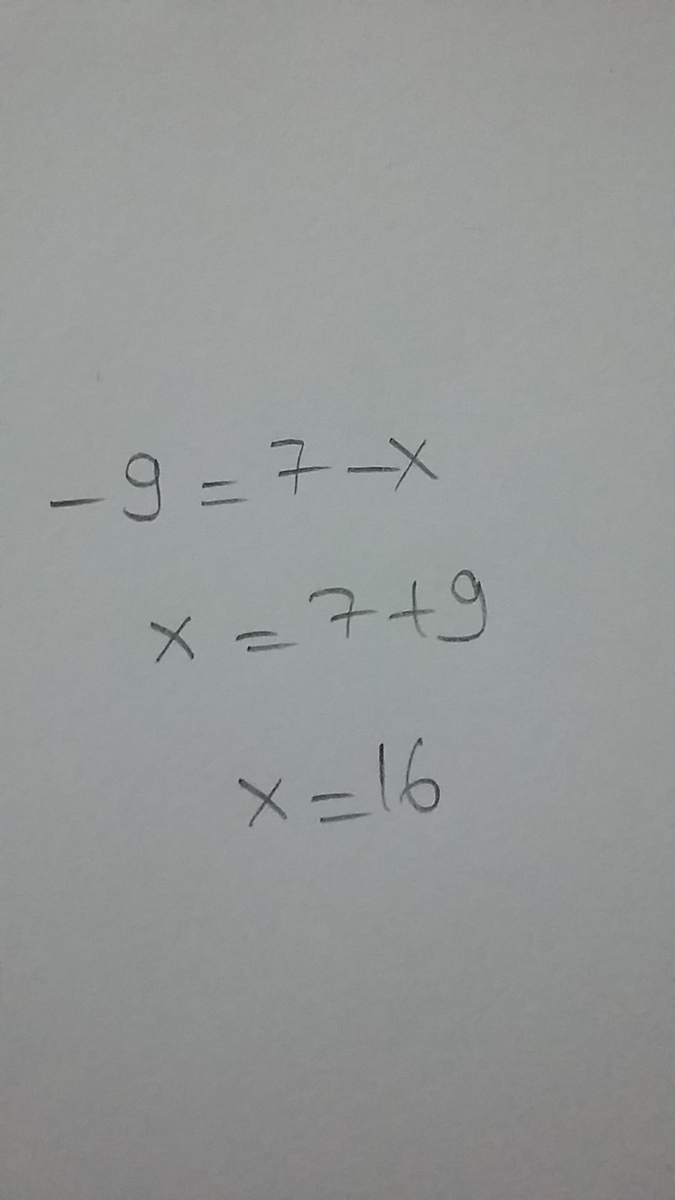 -9=7-x
x=7+9
x=16